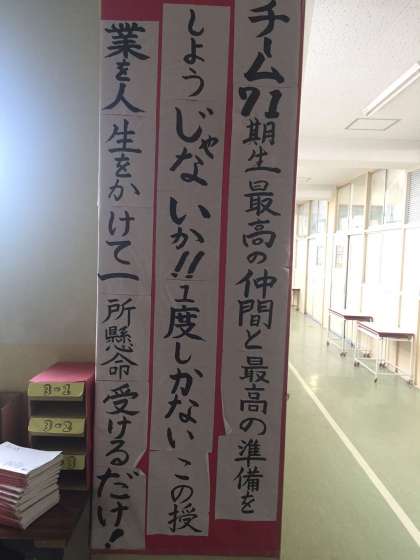 チーム71期生最高の仲間と最高の準備を
しようじゃないか!!1度しかないこの授
業を人生をかけて一所懸命受けるだけ!